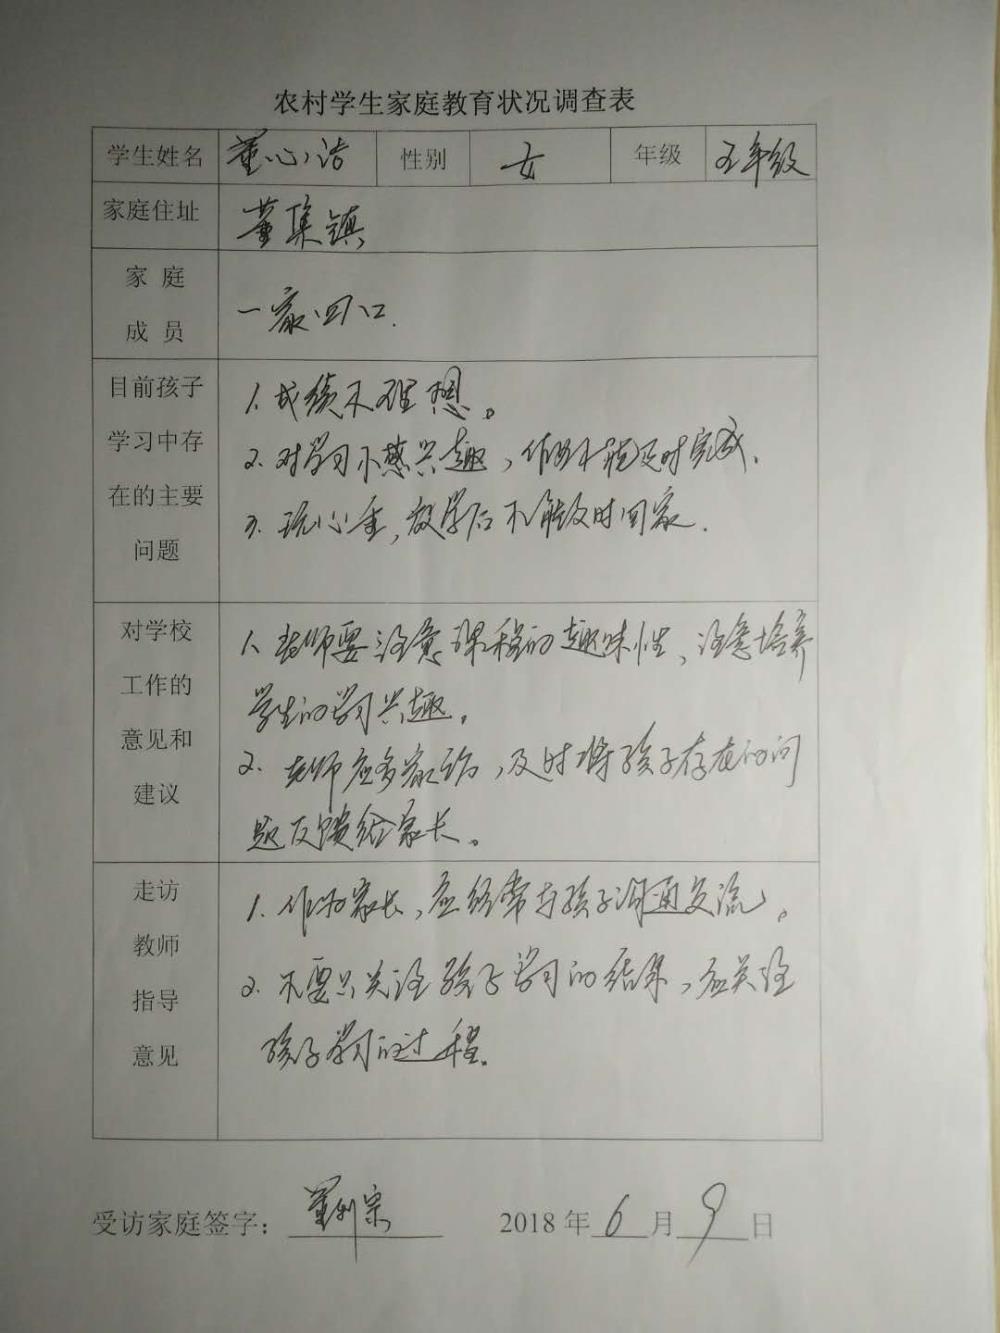 农村学生家庭教育状况调查表
学生姓名 董心洁 性别 女 年级 五年级
家庭住址 董集镇
家庭
成员
一家四口.
目前孩子
学习中存
在的主要
问题
1. 成绩不理想。
2. 对学习不感兴趣，作业不能及时完成.
3. 玩心重，放学后不能及时回家.
对学校
工作的
意见和
建议
1. 老师要注意课程的趣味性、注意培养
学生的学习兴趣。
2. 老师应多家访，及时将孩子存在的问
题反馈给家长。
走访
教师
指导
意见
1. 作为家长，应经常与孩子沟通交流。
2. 不要只关注孩子学习的结果，应关注
孩子学习的过程.
受访家庭签字： 董利宗 2018 年 6 月 9 日